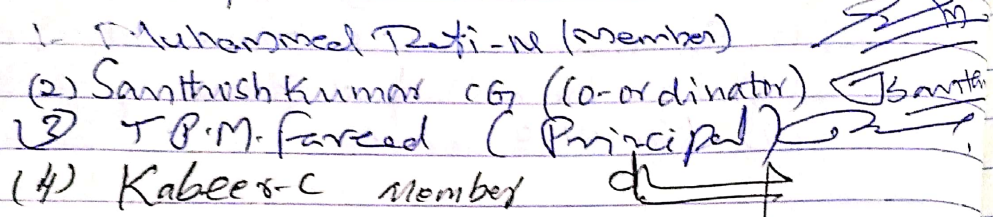 1- Muhammed Rafi-M (member)
(2) Santhosh Kumar CG (Co-ordinator) Santh
(3) T P.M. Fareed (Principal)
(4) Kabeer-C Member